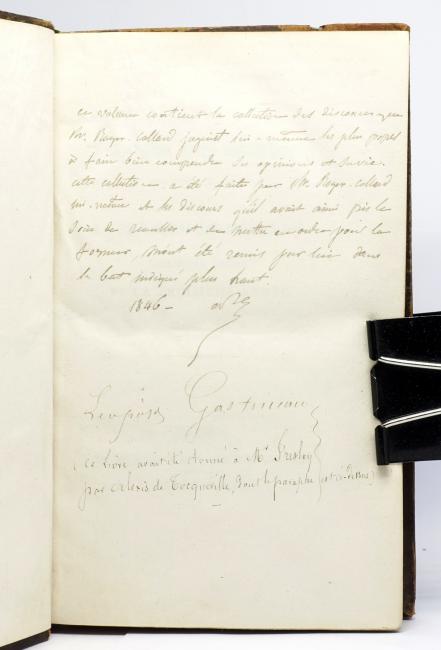 ce volume contient la collection des discours que
Mr. Royer-Collard jugeait lui-même les plus propres
à faire bien comprendre ses opinions et sa vie.
cette collection a été faite par Mr. Royer-Collard
lui-même et les discours qu'il avait ainsi pris le
soin de recueillir et de mettre en ordre pour la
former, m'ont été remis par lui dans
le but indiqué plus haut.
1846 -
Gastineau
(ce livre avait été donné à Mr
par Alexis de Tocqueville, dont le paraphe est ci-dessus)